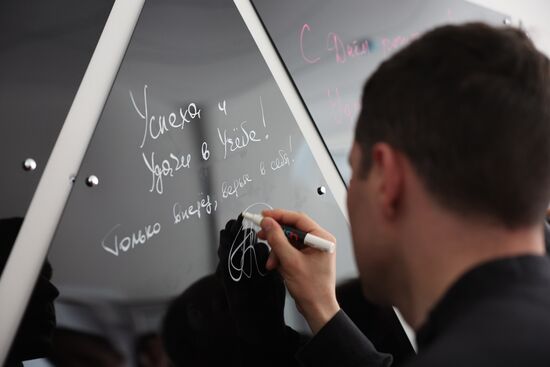 Успеха и
Удачи в Учёбе!
Только вперёд, верьте в себя!
С Днём